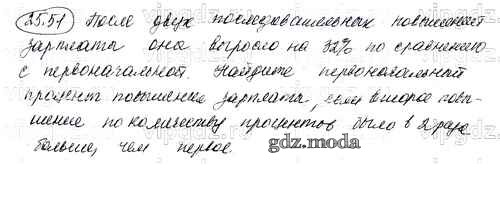 25.51 После двух последовательных повышений
зарплаты она выросло на 32% по сравнению
с первоначальной. Найдите первоначальный
процент повышения зарплаты, если второе повы-
шение по количеству процентов было в 2 раза
больше, чем первое.
gdz.moda